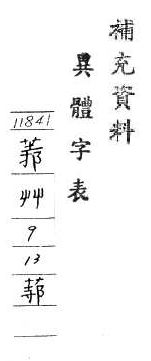 補充資料
異體字表
11841
艸
9
13